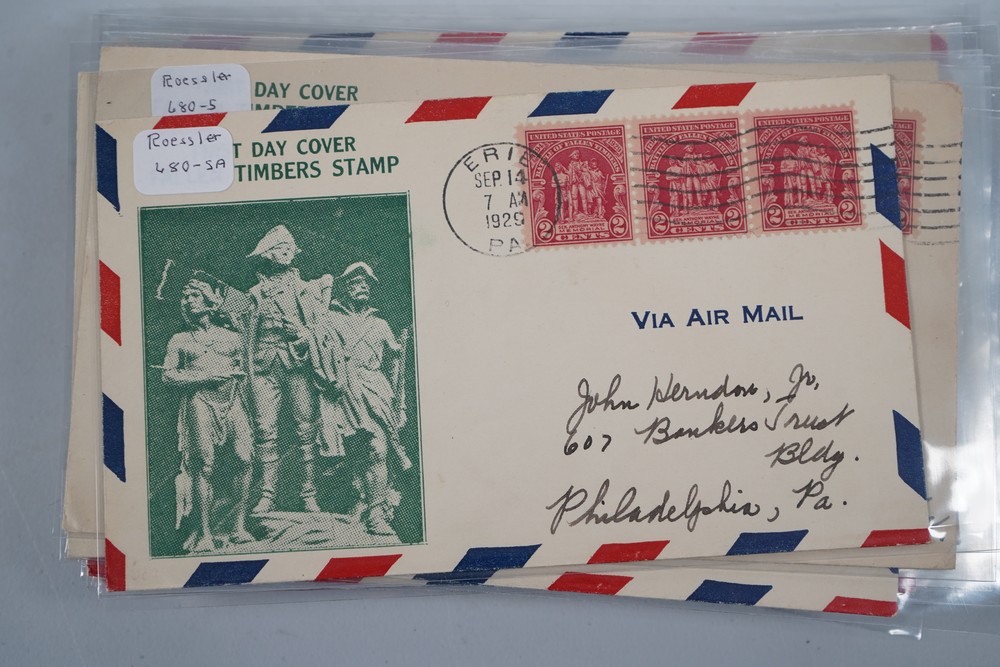 Roessler
680-S
DAY COVER
Roessler
680-SA
T DAY COVER
TIMBERS STAMP
ERIE
SEP. 14
7 AM
1929
PA
UNITED STATES POSTAGE
BATTLE OF FALLEN TIMBERS
2 CENTS 2
UNITED STATES POSTAGE
BATTLE OF FALLEN TIMBERS
2 CENTS 2
UNITED STATES POSTAGE
BATTLE OF FALLEN TIMBERS
2 CENTS 2
VIA AIR MAIL
John Herndon, Jr,
607 Bankers Trust
Bldg.
Philadelphia, Pa.